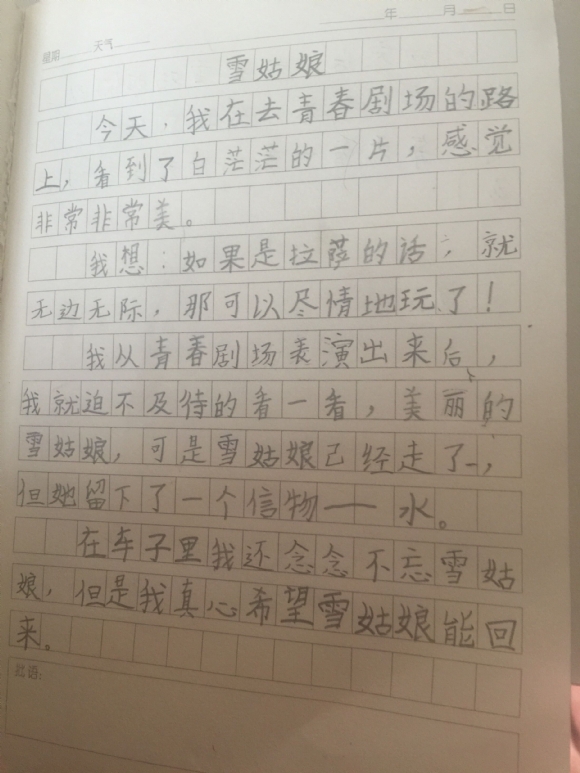 年 月 日
星期 天气
雪姑娘
今天,我在去青春剧场的路
上,看到了白茫茫的一片,感觉
非常非常美。
我想:如果是拉萨的话,就
无边无际,那可以尽情地玩了!
我从青春剧场表演出来后,
我就迫不及待的看一看,美丽的
雪姑娘,可是雪姑娘已经走了,
但她留下了一个信物——水。
在车子里我还念念不忘雪姑
娘,但是我真心希望雪姑娘能回
来。